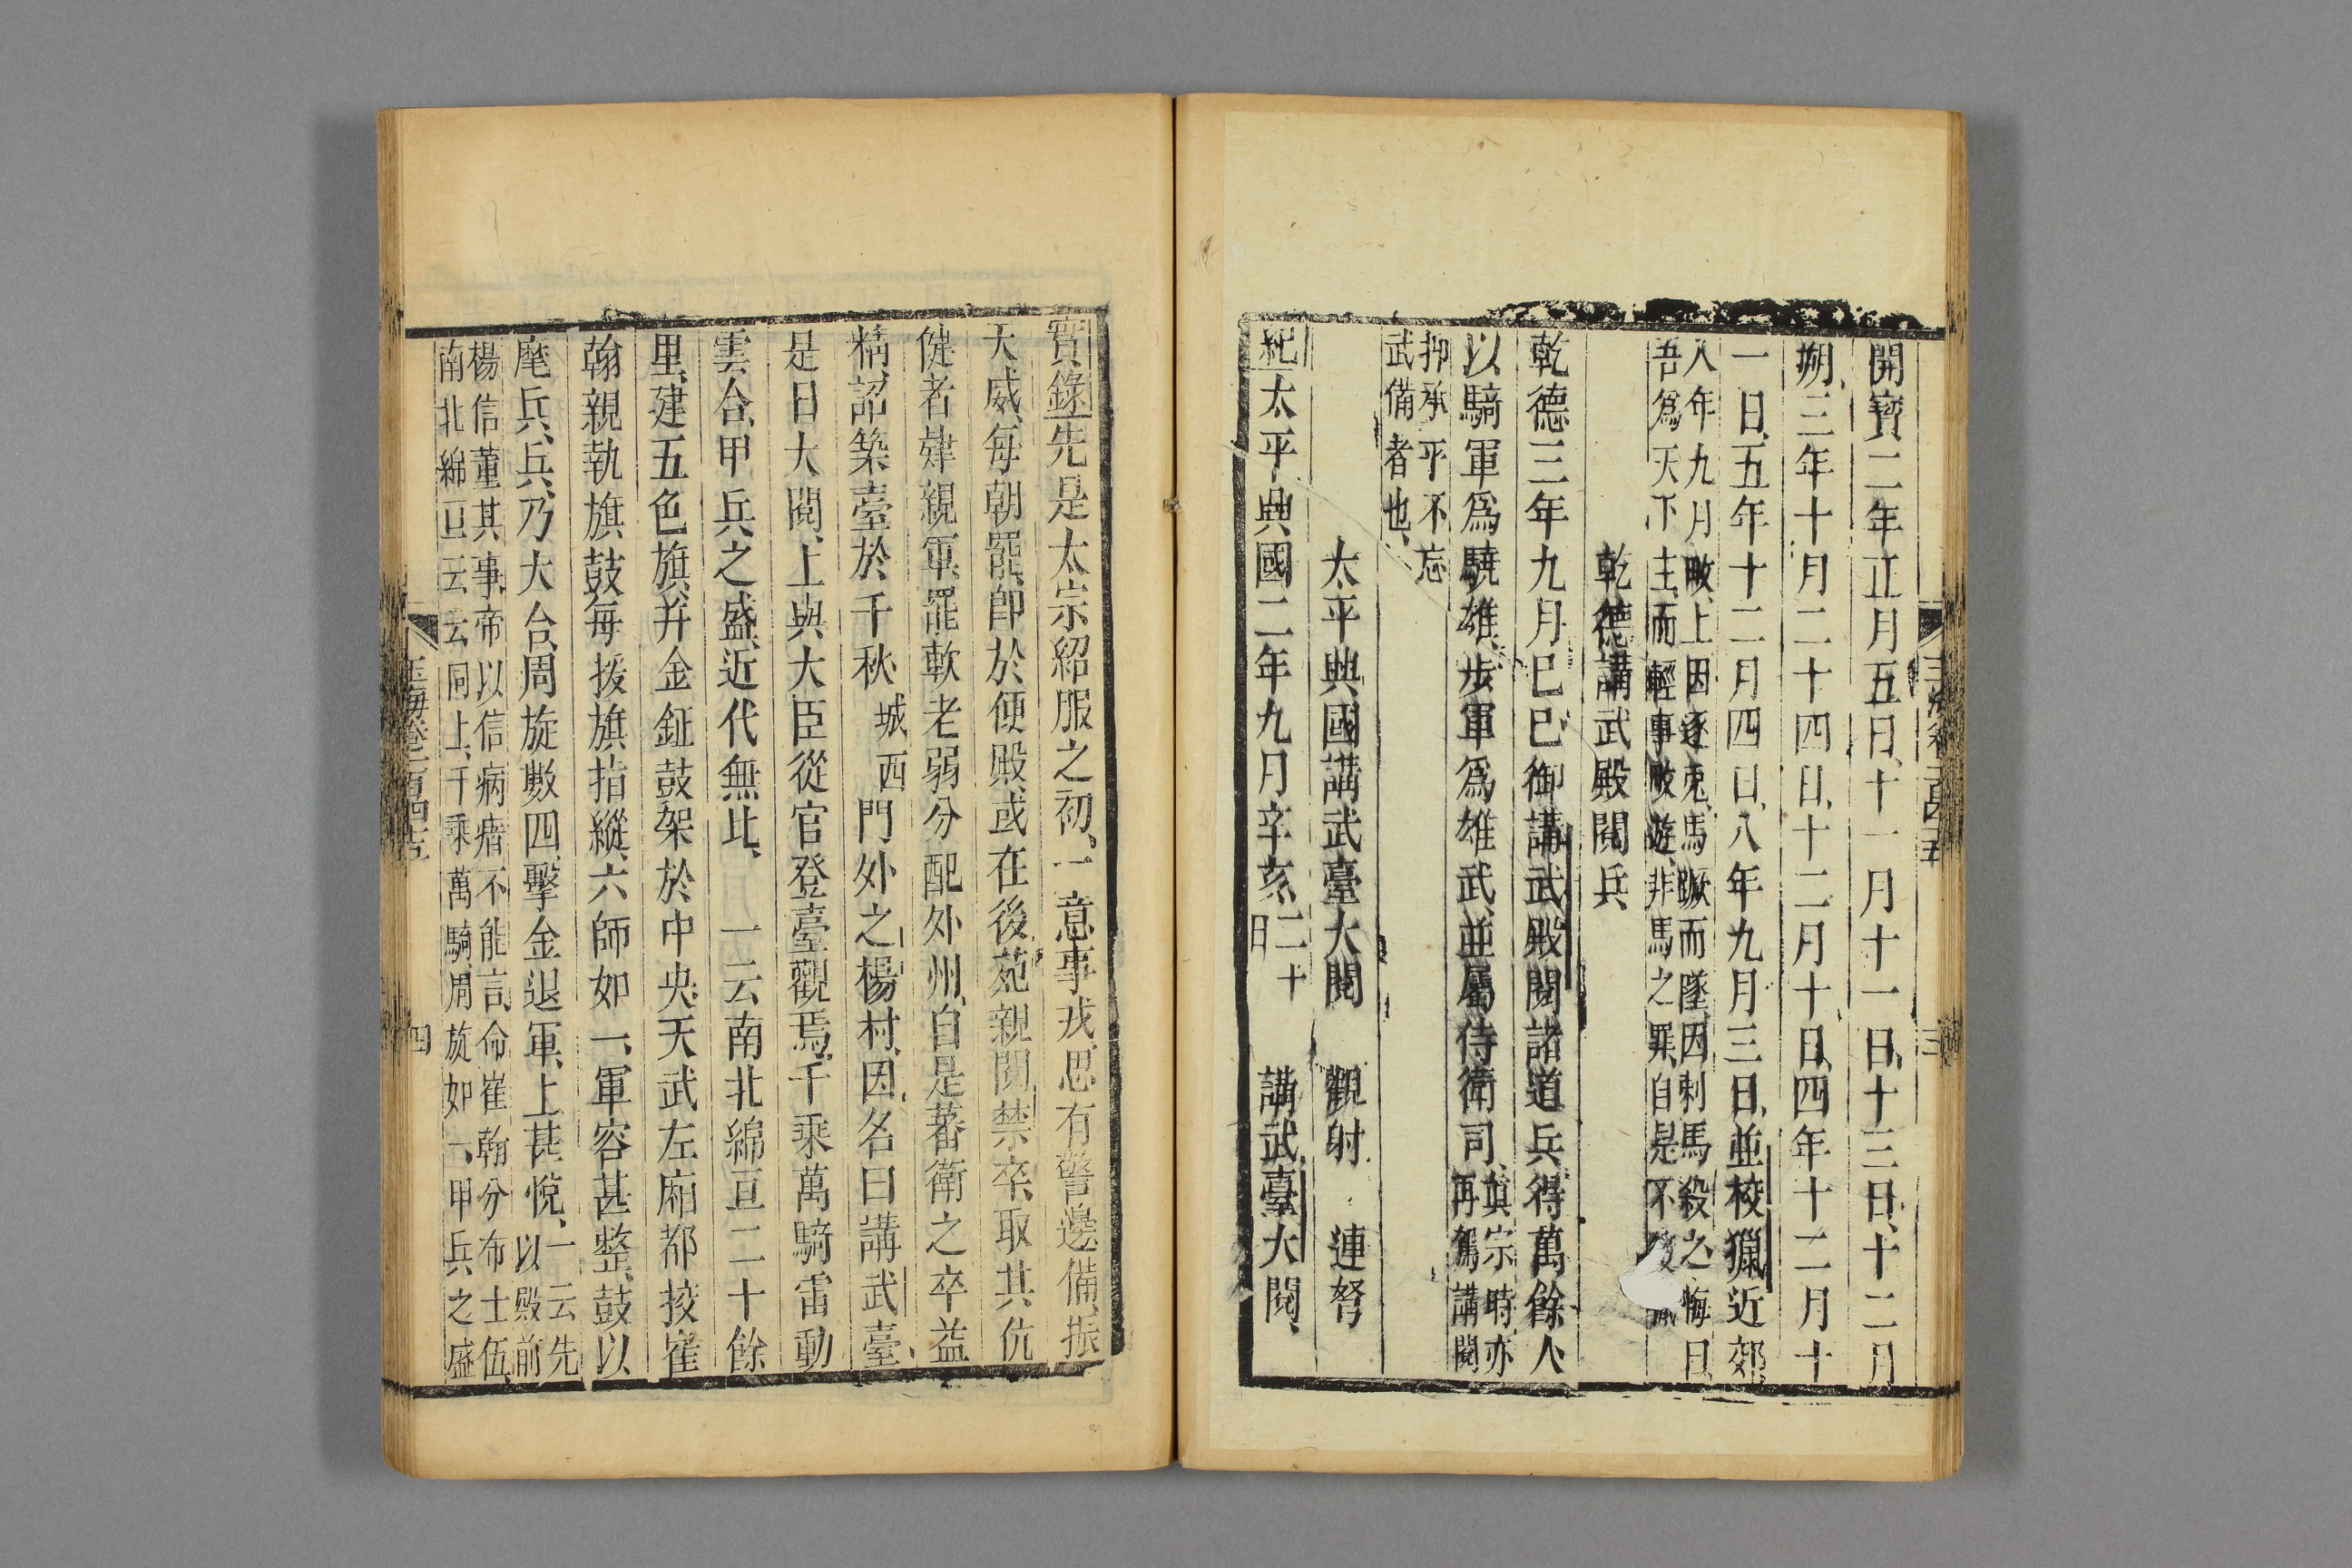 開寶二年正月五日十一月十一日十三日十二月
朔三年十月二十四日十二月十日四年十二月十
一日五年十二月四日八年九月三日並校獵近郊
八年九月畋上因逐兎馬蹶而墜因刺馬殺之悔曰
吾爲天下主而輕事畋遊非馬之罪自是不復獵
乾德講武殿閱兵
乾德三年九月己巳御講武殿閱諸道兵得萬餘人
以騎軍爲驍雄步軍爲雄武並屬侍衛司
眞宗時亦
再駕講閱
抑承平不忘
武備者也
太平興國講武臺大閱 觀射 連弩
紀太平興國二年九月辛亥
二十
日
講武臺大閱
玉海卷二百四十五
三
實錄先是太宗紹服之初一意事戎思有警邊備振
天威每朝罷即於便殿或在後苑親閱禁卒取其伉
健者肄親軍罷軟老弱分配外州自是蕃衛之卒益
精詔築臺於千秋
城
西
門外之楊村因名曰講武臺
是日大閱上與大臣從官登臺觀焉千乘萬騎雷動
雲合甲兵之盛近代無比
一云南北綿亘二十餘
里建五色旗幷金鉦鼓架於中央天武左廂都挍崔
翰親執旗鼓每援旗指縱六師如一軍容甚整鼓以
麾兵兵乃大合周旋數四擊金退軍上甚悅
一云先
以殿前
楊信董其事帝以信病瘖不能言命崔翰分布士伍
南北綿亘云云同上千乘萬騎周旋如一甲兵之盛
四